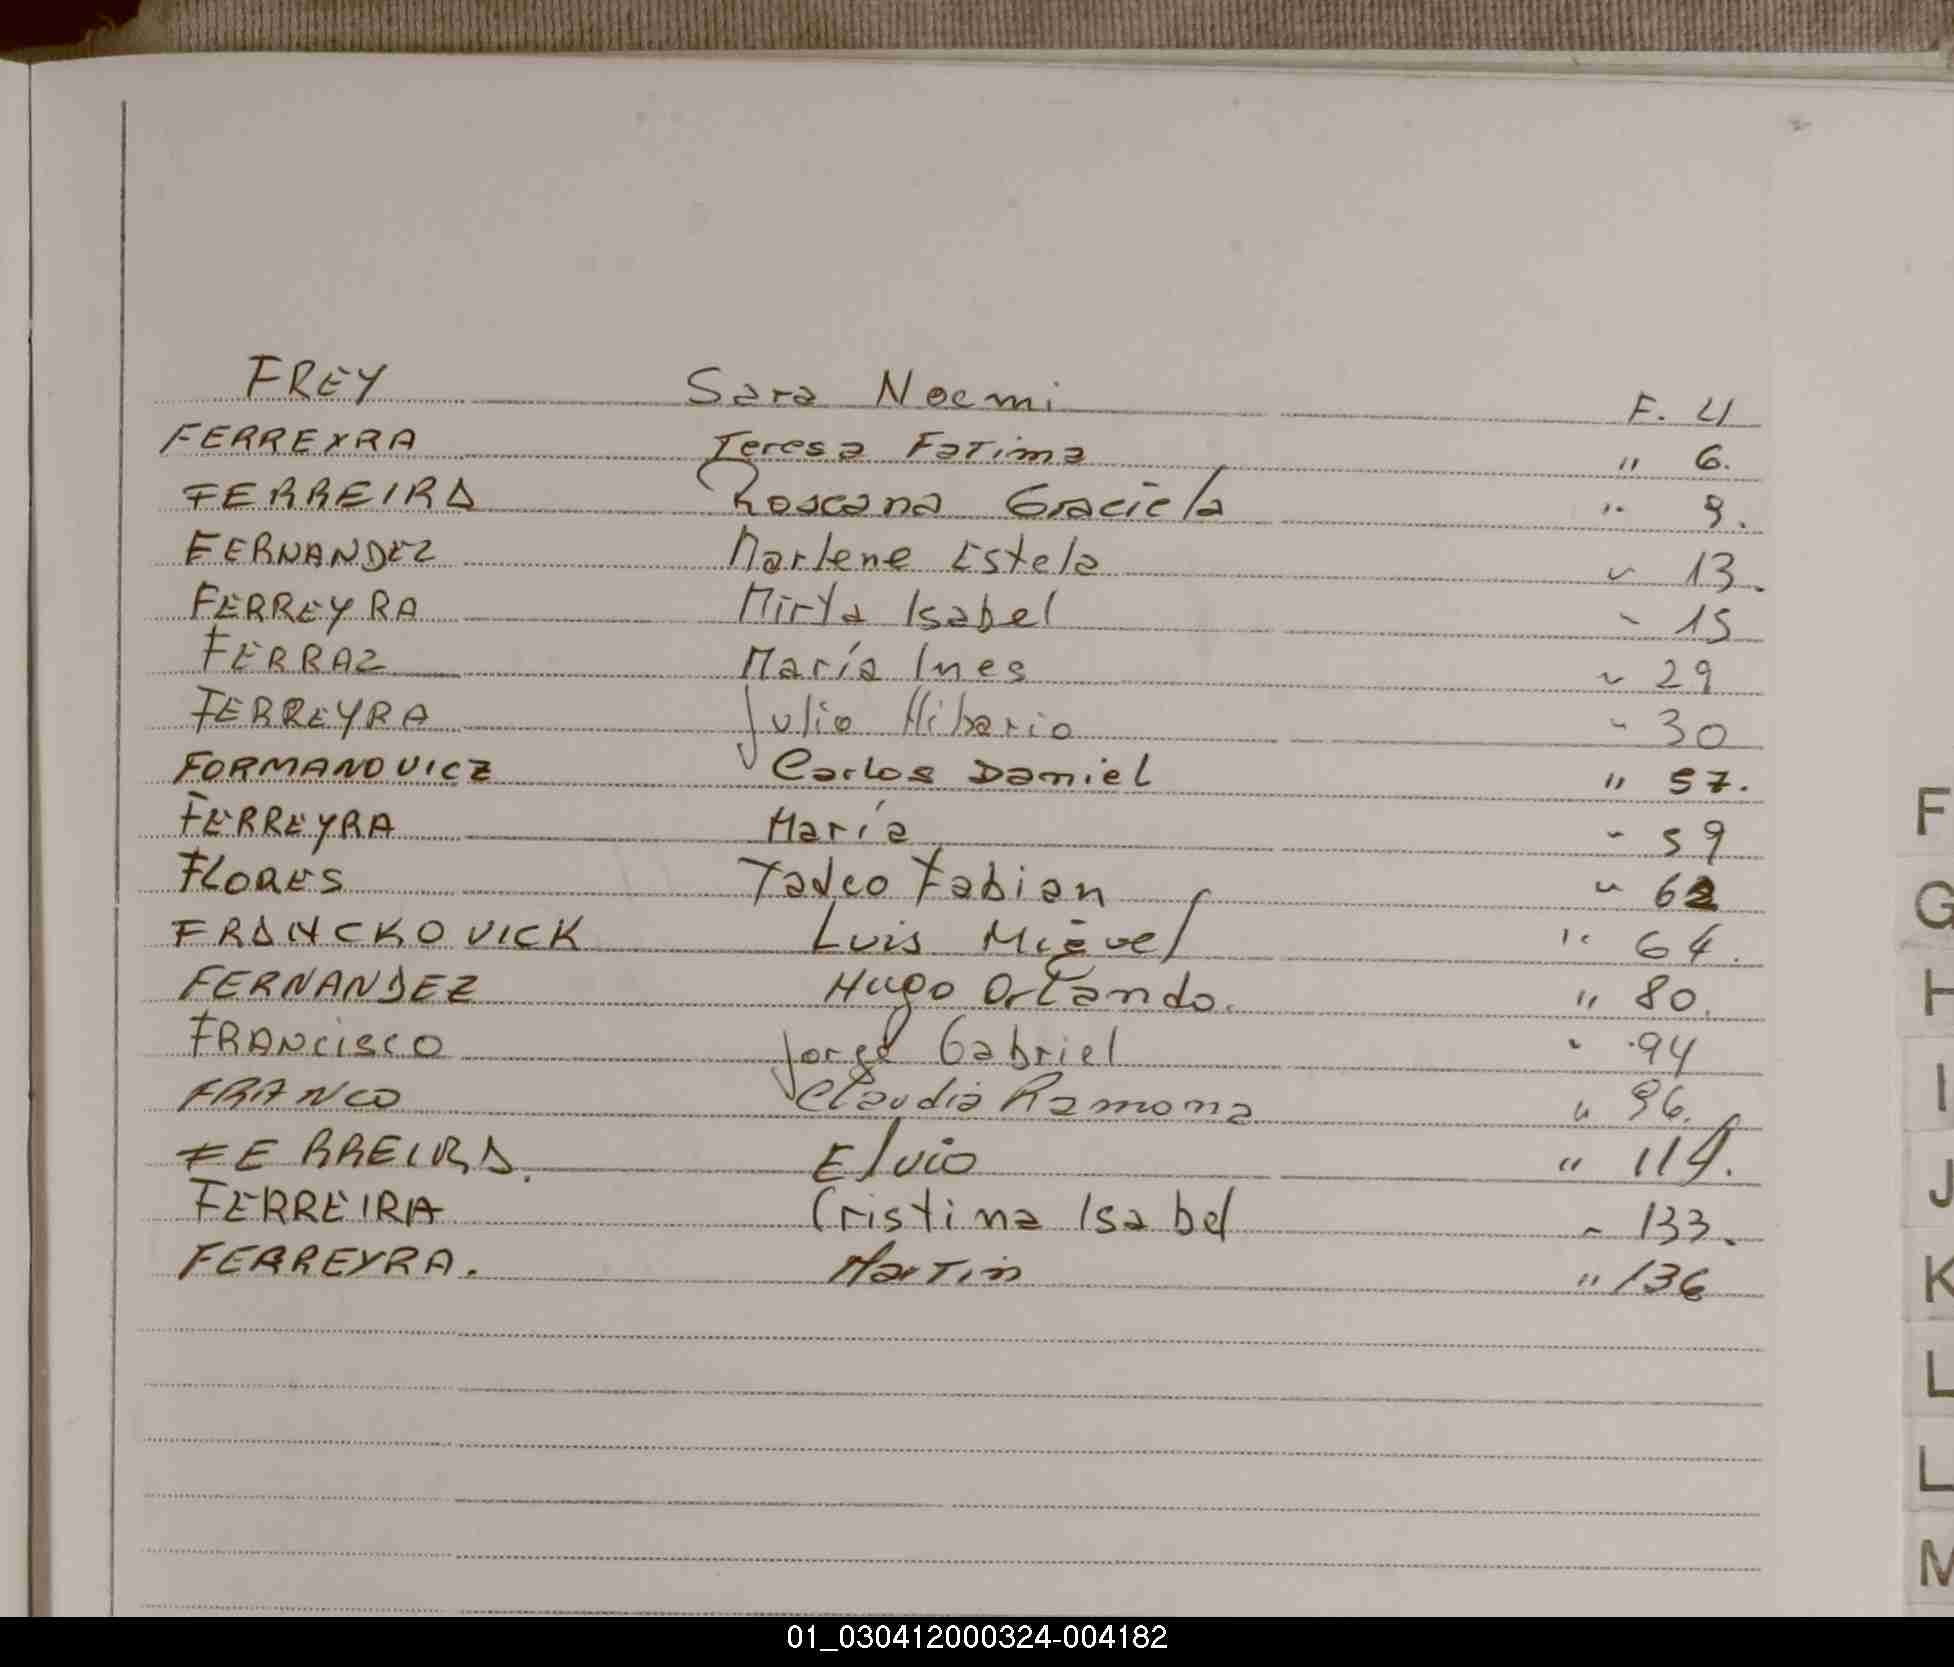 FREY Sara Noemi F. 4
FERREYRA Teresa Fatima " 6.
FERREIRA Roseana Graciela " 9.
FERNANDEZ Marlene Estela " 13.
FERREYRA Mirta Isabel " 15
FERRAZ María Ines " 29
FERREYRA Julio Hilario " 30
FORMANOVICZ Carlos Daniel " 57.
FERREYRA María " 59
FLORES Tadeo Fabian " 62
FRANCKOVICK Luis Miguel " 64.
FERNANDEZ Hugo Orlando. " 80.
FRANCISCO Jorge Gabriel " 94
FRANCO Claudia Ramona " 96.
FERREIRA. Elvio "
FERREIRA Cristina Isabel " 133.
FERREYRA. Martin " 136
F
G
H
I
J
K
L
L
M
01_030412000324-004182